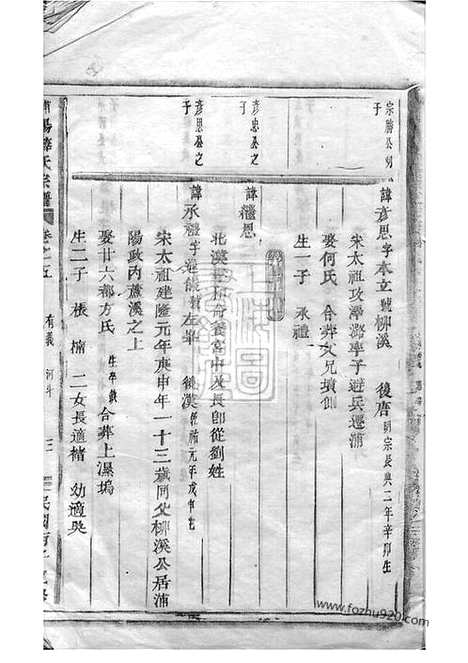 宗勝公初
子
諱彥思字本立號柳溪　後唐明宗長興二年辛卯生
宋太祖攻澤潞率子避兵遷浦
娶何氏　合葬父兄墳側
生一子　承禮
彥忠公之
子
諱繼恩
北漢主
養宮中及長即從劉姓
彥思公之
子
諱承禮字
後漢乾祐元年戊申生
宋太祖建隆元年庚申年一十三歲同父柳溪公居浦
陽政內蘆溪之上
娶廿六都方氏　生卒缺　合葬上濕塢
生二子　棖　楠　二女長適褚　幼適吳
氏宗譜
卷之五
有義
河斗
三
民國
www.fozhu920.com